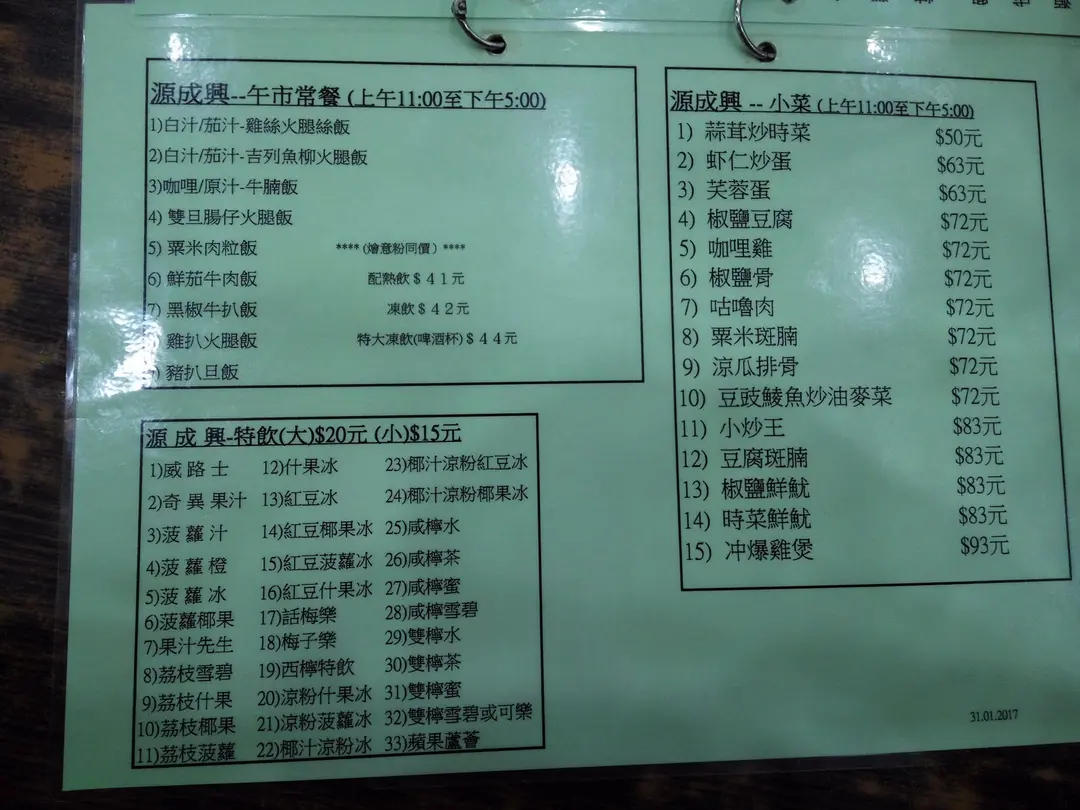 源成興--午市常餐 (上午11:00至下午5:00)
1)白汁/茄汁-雞絲火腿絲飯
2)白汁/茄汁-吉列魚柳火腿飯
3)咖哩/原汁-牛腩飯
4) 雙旦腸仔火腿飯
5) 粟米肉粒飯 **** (燴意粉同價) ****
6) 鮮茄牛肉飯 配熱飲＄４１元
7) 黑椒牛扒飯 凍飲＄４２元
雞扒火腿飯 特大凍飲(啤酒杯)＄４４元
豬扒旦飯
源 成 興-特飲(大)$20元 (小)$15元
1)威 路 士 12)什果冰 23)椰汁涼粉紅豆冰
2)奇 異 果汁 13)紅豆冰 24)椰汁涼粉椰果冰
3)菠 蘿 汁 14)紅豆椰果冰 25)咸檸水
4)菠 蘿 橙 15)紅豆菠蘿冰 26)咸檸茶
5)菠 蘿 冰 16)紅豆什果冰 27)咸檸蜜
6)菠蘿椰果 17)話梅樂 28)咸檸雪碧
7)果汁先生 18)梅子樂 29)雙檸水
8)荔枝雪碧 19)西檸特飲 30)雙檸茶
9)荔枝什果 20)涼粉什果冰 31)雙檸蜜
10)荔枝椰果 21)涼粉菠蘿冰 32)雙檸雪碧或可樂
11)荔枝菠蘿 22)椰汁涼粉冰 33)蘋果蘆薈
源成興 -- 小菜 (上午11:00至下午5:00)
1) 蒜茸炒時菜 $50元
2) 虾仁炒蛋 $63元
3) 芙蓉蛋 $63元
4) 椒鹽豆腐 $72元
5) 咖哩雞 $72元
6) 椒鹽骨 $72元
7) 咕嚕肉 $72元
8) 粟米斑腩 $72元
9) 涼瓜排骨 $72元
10) 豆豉鯪魚炒油麥菜 $72元
11) 小炒王 $83元
12) 豆腐斑腩 $83元
13) 椒鹽鮮魷 $83元
14) 時菜鮮魷 $83元
15) 冲爆雞煲 $93元
31.01.2017